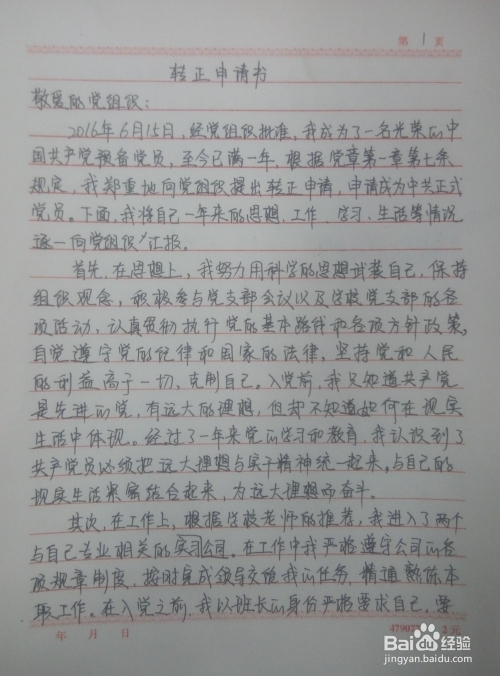 第 1 页
转正申请书
敬爱的党组织：
2016年6月15日，经党组织批准，我成为了一名光荣的中
国共产党预备党员，至今已满一年，根据党章第一章第七条
规定，我郑重地向党组织提出转正申请，申请成为中共正式
党员。下面，我将自己一年来的思想、工作、学习、生活等情况
逐一向党组织汇报。
首先，在思想上，我努力用科学的思想武装自己，保持
组织观念，积极参与党支部会议以及学校党支部的各
项活动，认真贯彻执行党的基本路线和各项方针政策。
自觉遵守党的纪律和国家的法律，坚持党和人民
的利益高于一切，克制自己。入党前，我只知道共产党
是先进的党，有远大的理想，但却不知道如何在现实
生活中体现。经过了一年来党的学习和教育，我认识到了
共产党员必须把远大理想与实干精神统一起来，与自己的
现实生活紧密结合起来，为远大理想而奋斗。
其次，在工作上，根据学校老师的推荐，我进入了两个
与自己专业相关的实习公司。在工作中我严格遵守公司的各
项规章制度，按时完成领导交给我的任务，精通熟练本
职工作。在入党之前，我以班长的身份严格要求自己，要
年 月 日
2元
Baidu经验
jingyan.baidu.com